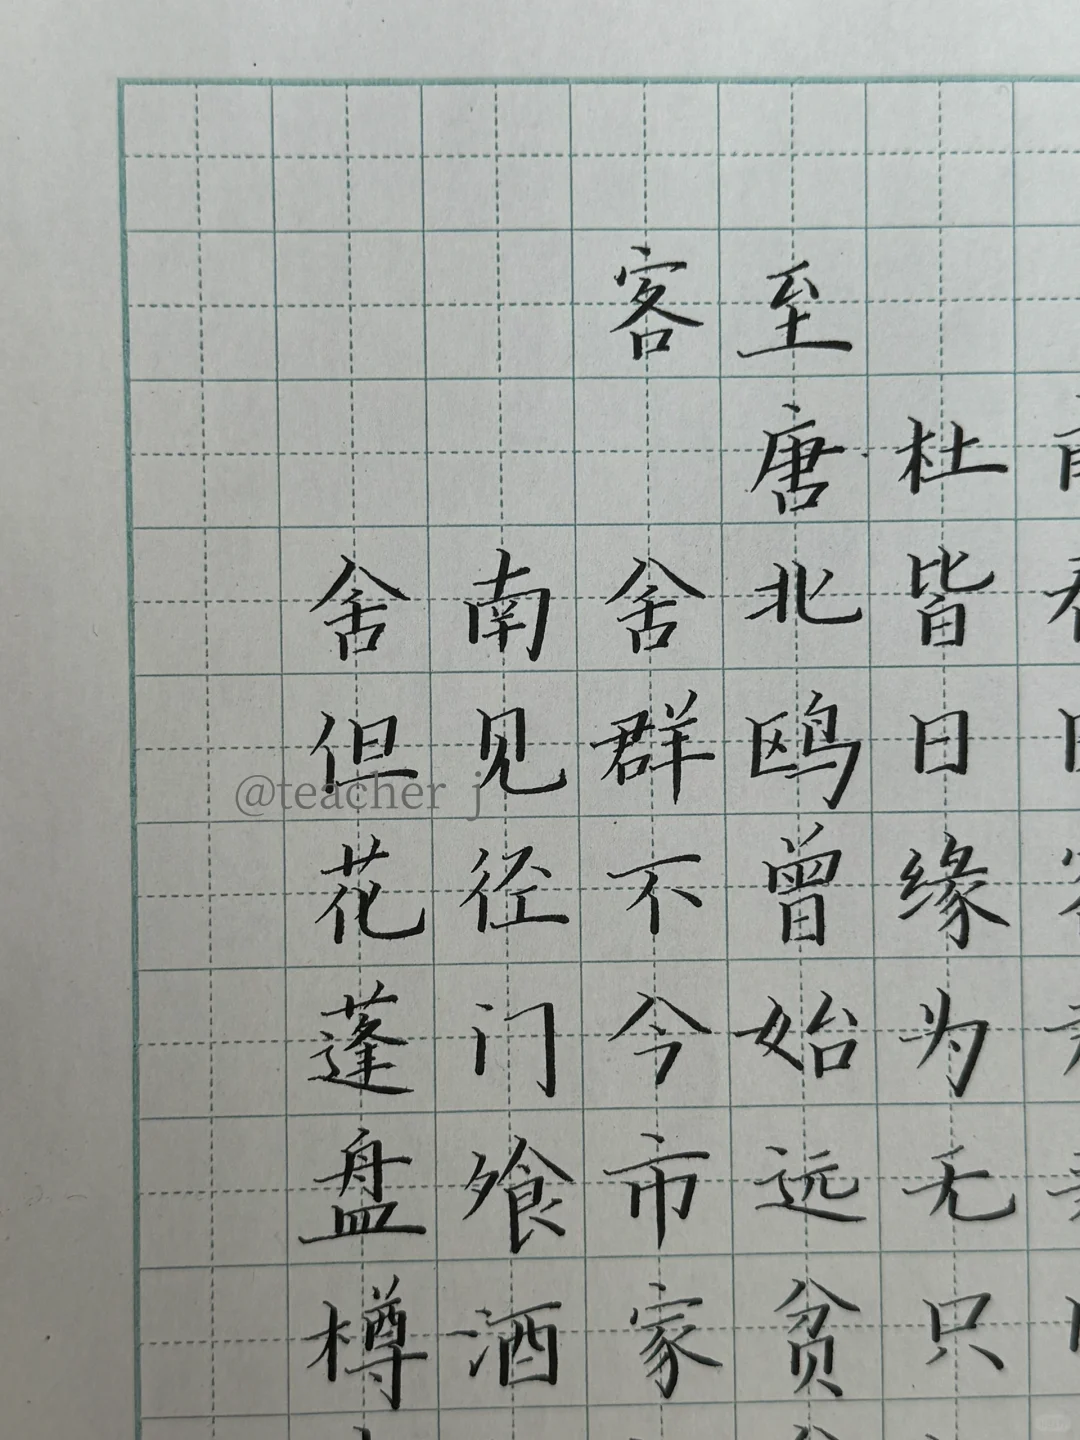 客至
唐 杜
舍南舍北皆
但见群鸥日
@teacher j
花径不曾缘
蓬门今始为
盘飧市远无
樽酒家贫只